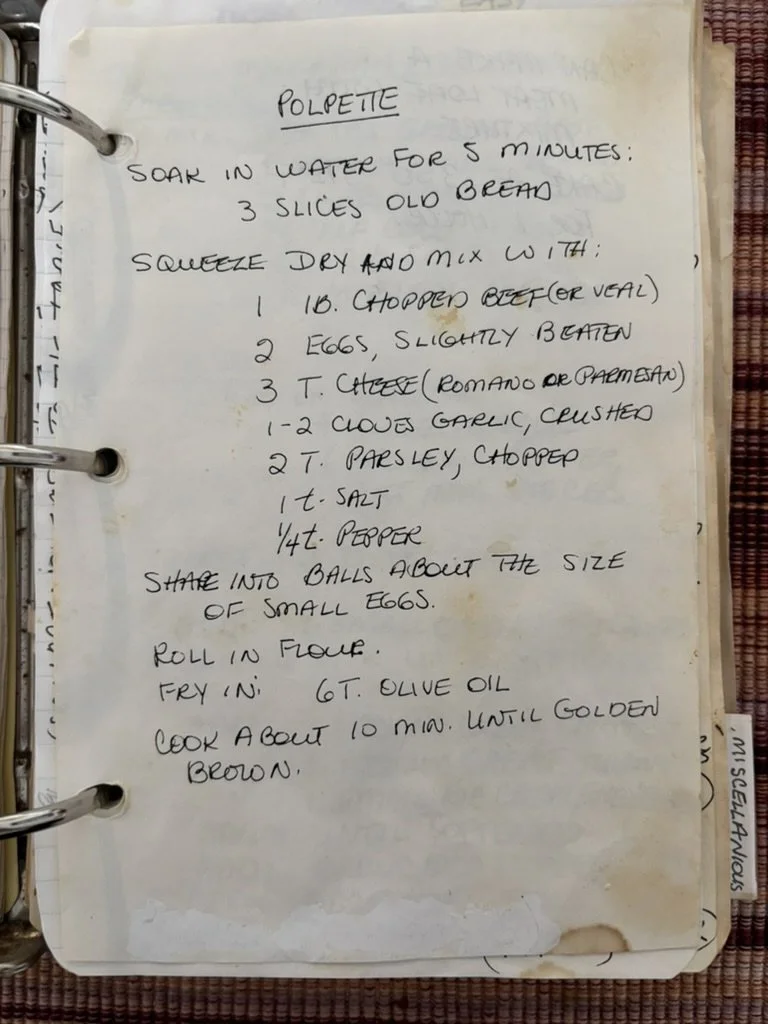 POLPETTE
SOAK IN WATER FOR 5 MINUTES:
3 SLICES OLD BREAD
SQUEEZE DRY AND MIX WITH:
1 lB. CHOPPED BEEF (OR VEAL)
2 EGGS, SLIGHTLY BEATEN
3 T. CHEESE (ROMANO OR PARMESAN)
1-2 CLOVES GARLIC, CRUSHED
2 T. PARSLEY, CHOPPED
1 t. SALT
1/4 t. PEPPER
SHAPE INTO BALLS ABOUT THE SIZE
OF SMALL EGGS.
ROLL IN FLOUR.
FRY IN: 6 T. OLIVE OIL
COOK ABOUT 10 MIN. UNTIL GOLDEN
BROWN.
MISCELLANIOUS